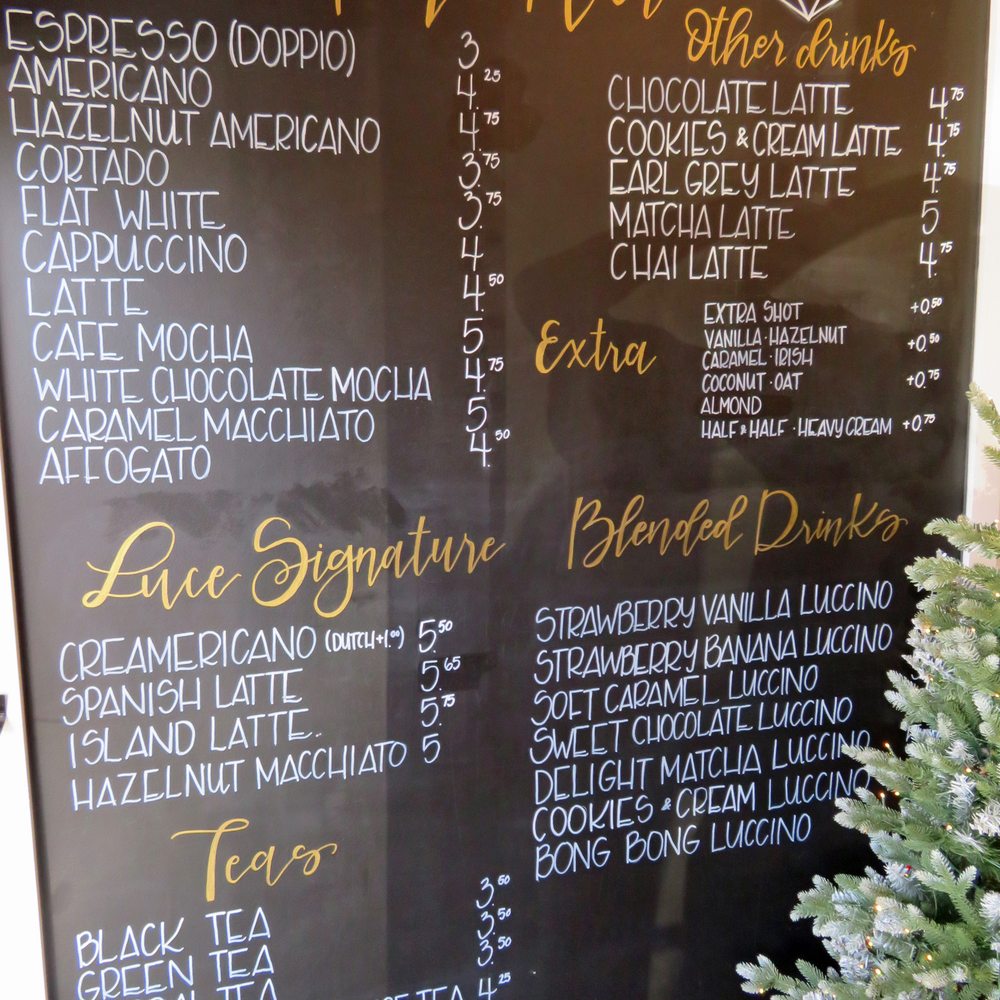 ESPRESSO (DOPPIO) 3.
AMERICANO 4.25
HAZELNUT AMERICANO 4.75
CORTADO 3.75
FLAT WHITE 3.75
CAPPUCCINO 4
LATTE 4.50
CAFE MOCHA 5
WHITE CHOCOLATE MOCHA 4.75
CARAMEL MACCHIATO 5
AFFOGATO 4.50
Luce Signature
CREAMERICANO (DUTCH+1.00) 5.50
SPANISH LATTE 5.65
ISLAND LATTE.. 5.75
HAZELNUT MACCHIATO 5
Teas
BLACK TEA 3.50
GREEN TEA 3.50
TEA 3.50
TEA 4.25
Other drinks
CHOCOLATE LATTE 4.75
COOKIES & CREAM LATTE 4.75
EARL GREY LATTE 4.75
MATCHA LATTE 5
CHAI LATTE 4.75
Extra
EXTRA SHOT +0.50
VANILLA · HAZELNUT +0.50
CARAMEL · IRISH
COCONUT · OAT +0.75
ALMOND
HALF & HALF · HEAVY CREAM +0.75
Blended Drinks
STRAWBERRY VANILLA LUCCINO
STRAWBERRY BANANA LUCCINO
SOFT CARAMEL LUCCINO
SWEET CHOCOLATE LUCCINO
DELIGHT MATCHA LUCCINO
COOKIES & CREAM LUCCINO
BONG BONG LUCCINO